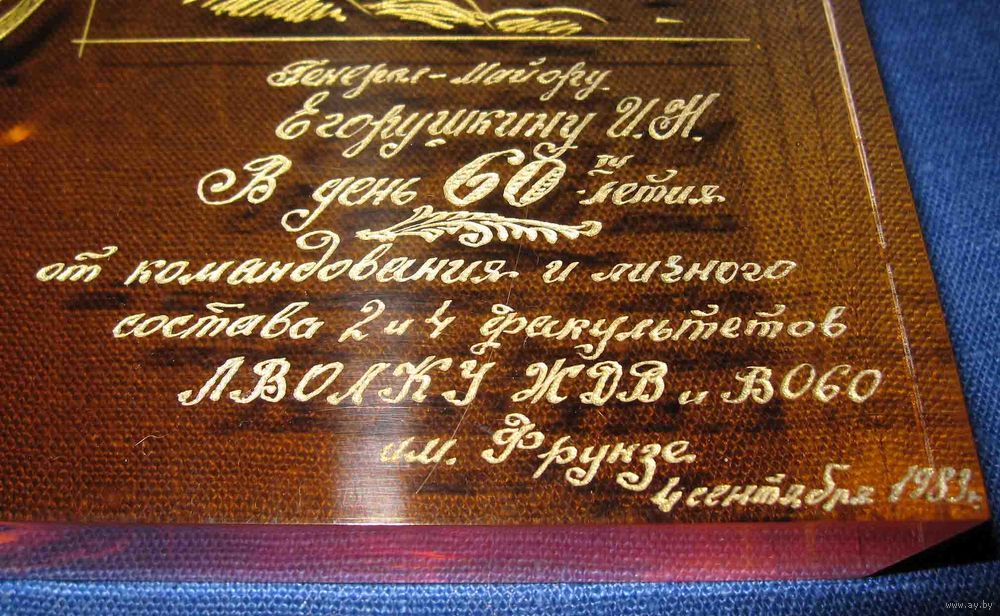 Генерал-майору
Егорушкину И.Н.
В день 60 летия
от командования и личного
состава 2 и 4 факультетов
ЛВОЛКУ ЖДВ и ВОСО
им. Фрунзе
4 сентября 1983г.
www.ay.by